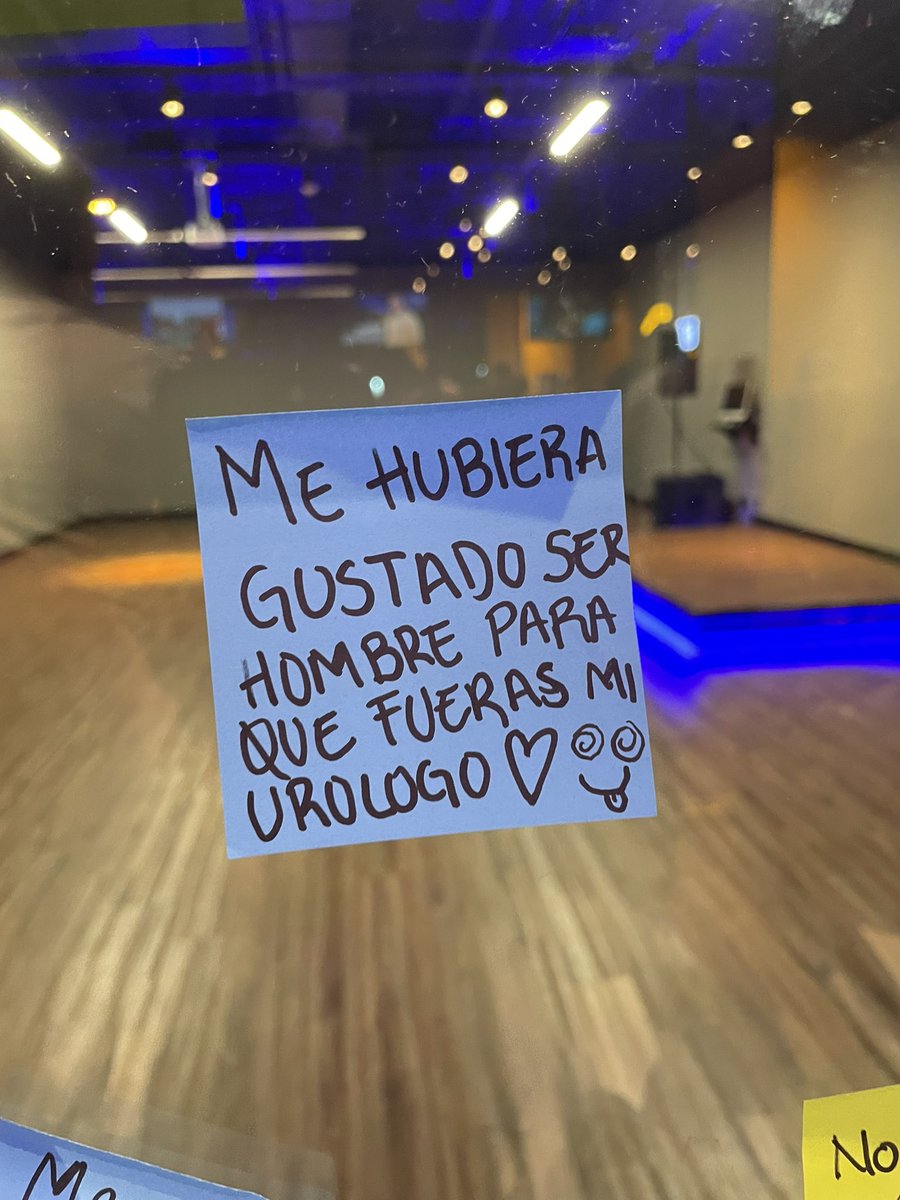 ME HUBIERA
GUSTADO SER
HOMBRE PARA
QUE FUERAS MI
UROLOGO
Me
No